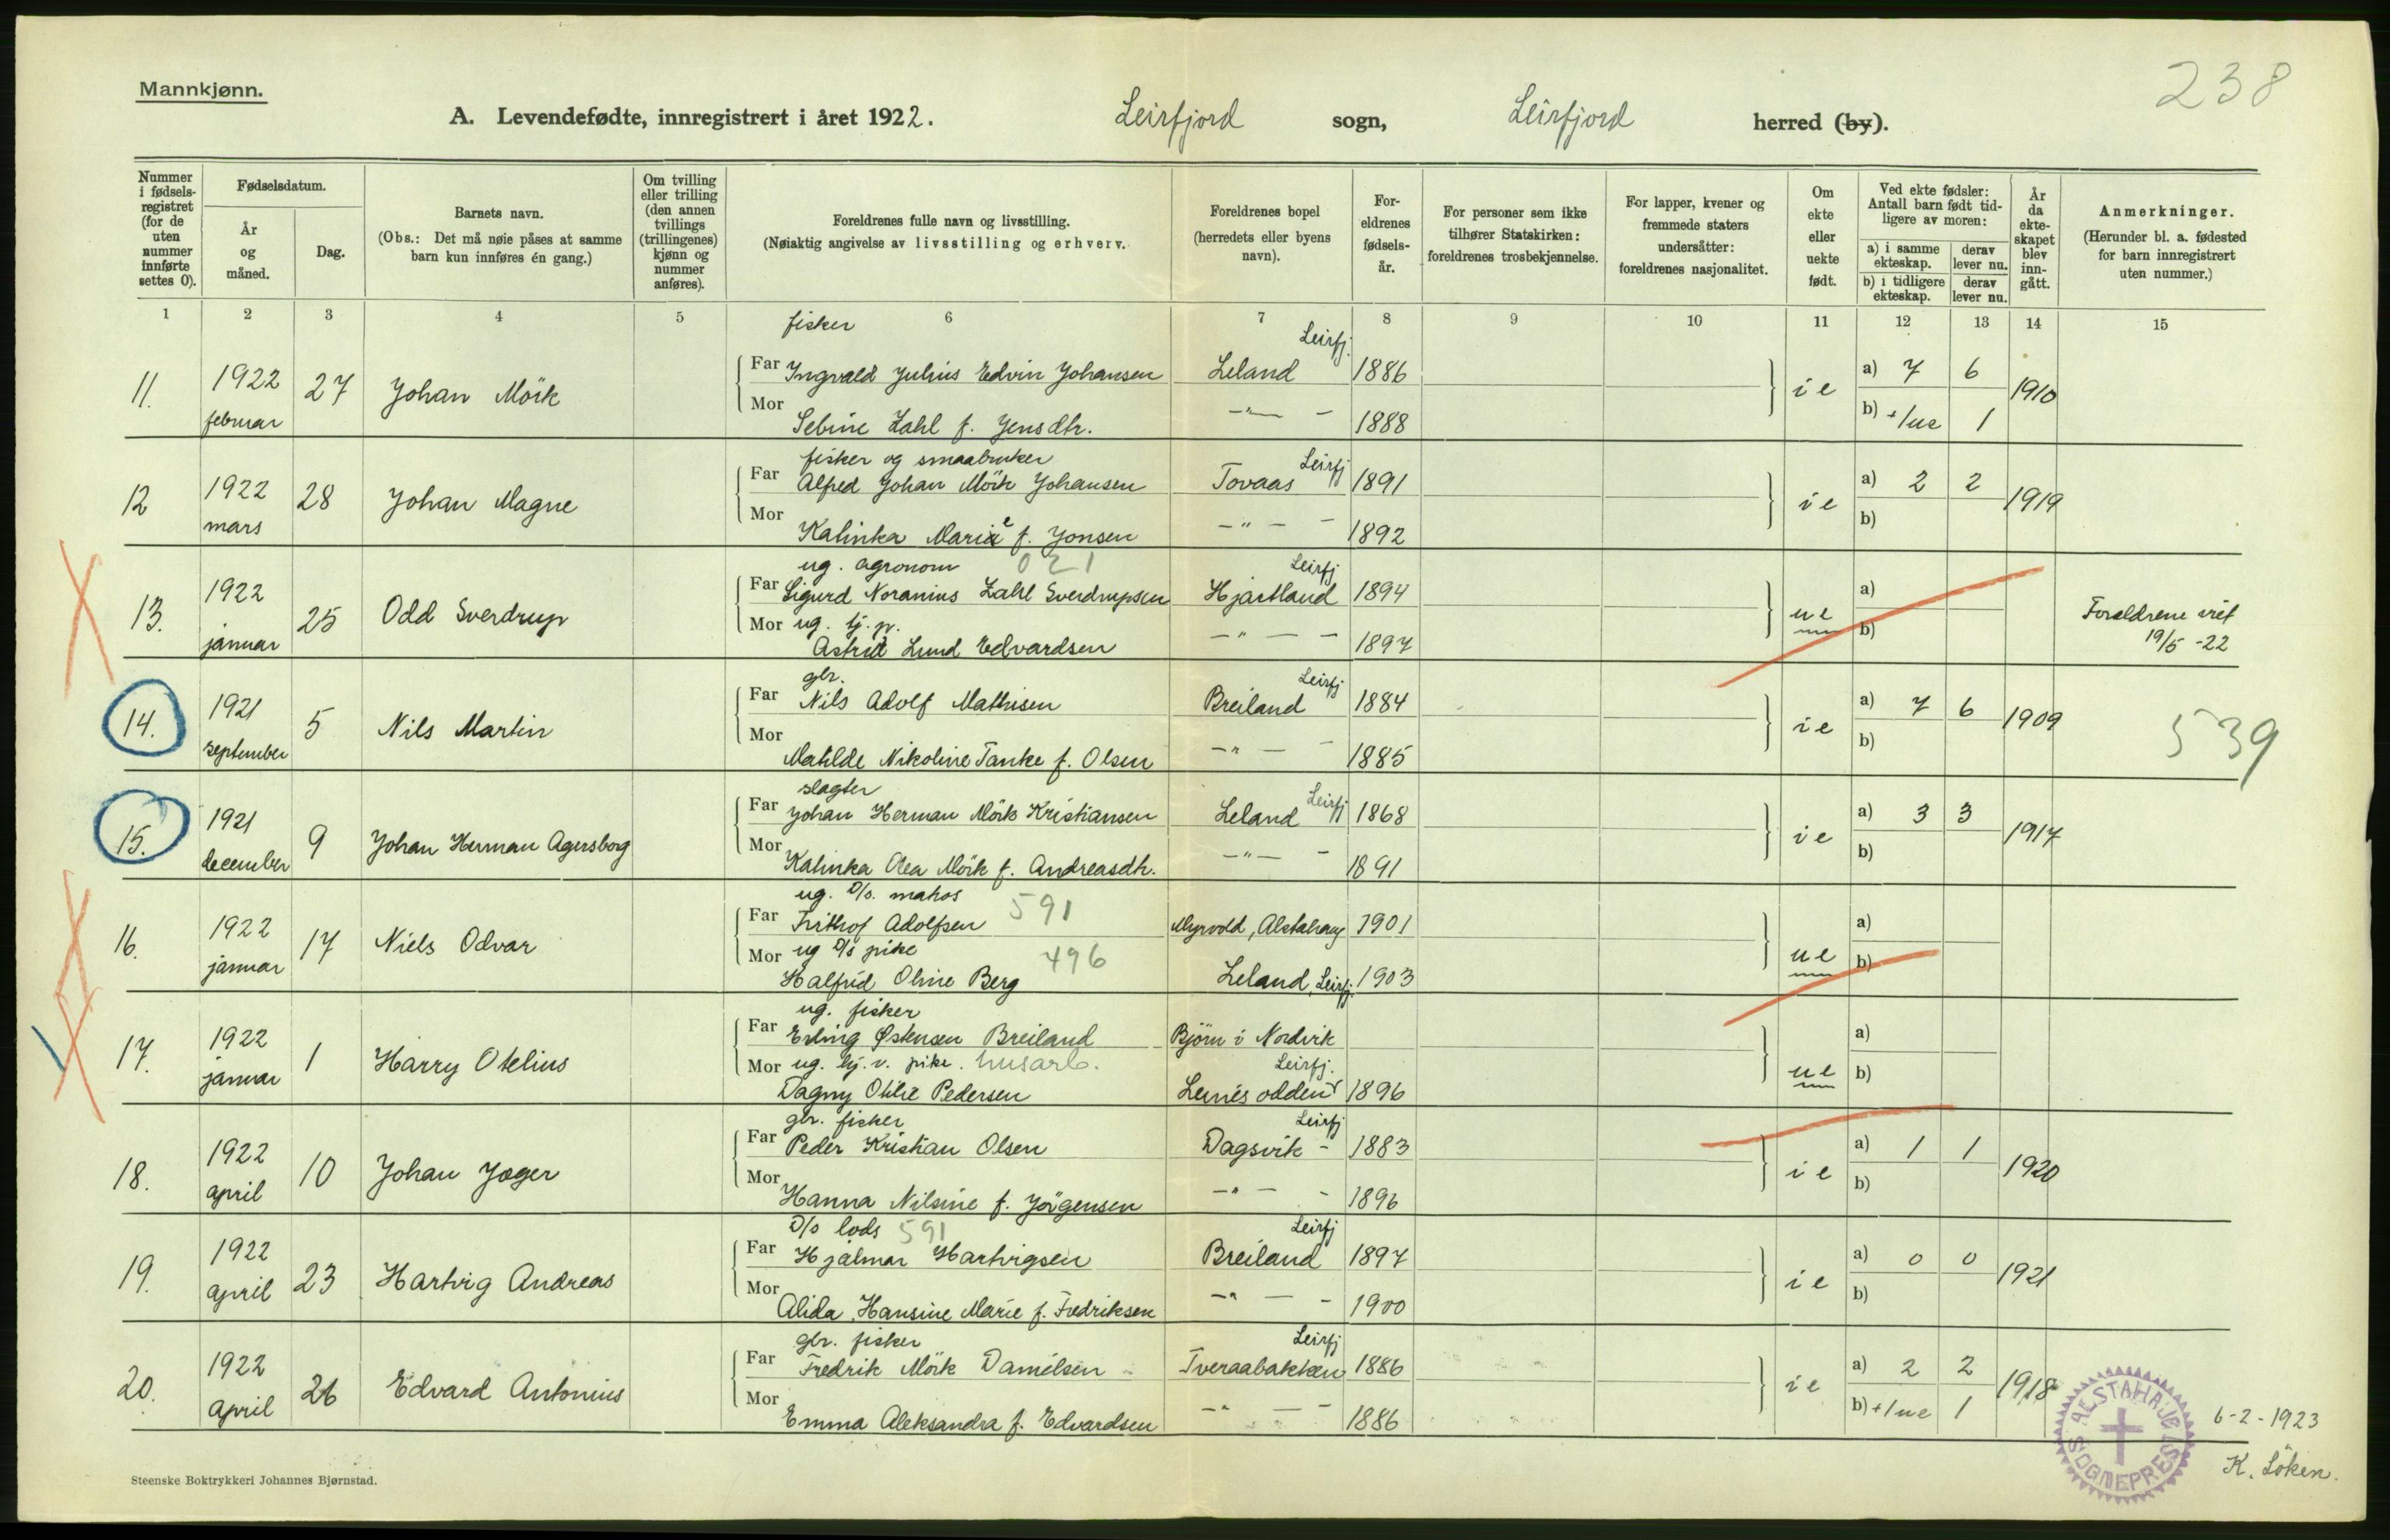 238
Mannkjønn.
A. Levendefødte, innregistrert i året 1922. Leirfjord sogn, Leirfjord herred (by).
Nummer i fødselsregistret (for de uten nummer innførte settes 0).
Fødselsdatum.
År og måned.
Dag.
Barnets navn.
(Obs.: Det må nøie påses at samme barn kun innføres én gang.)
Om tvilling eller trilling (den annen tvillings (trillingenes) kjønn og nummer anføres).
Foreldrenes fulle navn og livsstilling.
(Nøiaktig angivelse av livsstilling og erhverv.
Foreldrenes bopel (herredets eller byens navn).
Foreldrenes fødselsår.
For personer som ikke tilhører Statskirken: foreldrenes trosbekjennelse.
For lapper, kvener og fremmede staters undersåtter: foreldrenes nasjonalitet.
Om ekte eller uekte født.
Ved ekte fødsler: Antall barn født tidligere av moren:
a) i samme ekteskap. derav lever nu.
b) i tidligere ekteskap. derav lever nu.
År da ekteskapet blev inngått.
Anmerkninger.
(Herunder bl. a. fødested for barn innregistrert uten nummer.)
1 2 3 4 5 6 7 8 9 10 11 12 13 14 15
fisker Leirfj.
11. 1922 februar 27 Johan Mörk Far Ingvald Julius Edvin Johansen Leland 1886 i e a) 7 6 1910
Mor Sebine Zahl f. Jensdtr. -"- - 1888 b) +1ue 1
fisker og smaabruker Leirfj
12 1922 mars 28 Johan Magne Far Alfred Johan Mörk Johansen Tovaas 1891 i e a) 2 2 1919
Mor Kalinka Marie f. Jonsen -"- - 1892 b)
ug. agronom 021 Leirfj
13. 1922 januar 25 Odd Sverdrup Far Sigurd Noranius Zahl Sverdrupsen Hjartland 1894 ue a) Foreldrene viet
Mor ug. tj. p. Astrid Lund Edvardsen -"- - 1897 b) 19/5 -22
gbr. Leirfj
14. 1921 september 5 Nils Martin Far Nils Adolf Mathisen Breiland 1884 i e a) 7 6 1909 539
Mor Matilde Nikoline Tanke f. Olsen -"- - 1885 b)
slagter Leirfj
15. 1921 december 9 Johan Herman Agersborg Far Johan Herman Mörk Kristiansen Leland 1868 i e a) 3 3 1917
Mor Kalinka Olea Mörk f. Andreasdtr. -"- - 1891 b)
ug. D/s. matros 591
16. 1922 januar 17 Niels Odvar Far Frithof Adolfsen Myrvold, Alstahaug 1901 ue a)
Mor ug D/s pike 496 Halfrid Oline Berg Leland, Leirfj. 1903 b)
ug. fisker
17. 1922 januar 1 Harry Otelius Far Erling Østensen Breiland Björn i Nordvik ue a)
Mor ug. tj. v. pike. husarb. Leirfj.
Dagny Otilie Pedersen Leinesodden 1896 b)
gbr. fisker Leirfj
18. 1922 april 10 Johan Jæger Far Peder Kristian Olsen Dagsvik - 1883 i e a) 1 1 1920
Mor Hanna Nilsine f. Jörgensen -"- - 1896 b)
D/s lods 591 Leirfj
19. 1922 april 23 Hartvig Andreas Far Hjalmar Hartvigsen Breiland 1897 i e a) 0 0 1921
Mor Alida Hansine Marie f. Fredriksen -"- - 1900 b)
gbr. fisker Leirfj
20. 1922 april 26 Edvard Antonius Far Fredrik Mörk Danielsen Tveraabakken 1886 i e a) 2 2 1918
Mor Emma Aleksandra f. Edvardsen -"- - 1886 b) +1ue 1
ALSTAHAUG SOGNEPREST
6-2-1923
K. Löken.
Steenske Boktrykkeri Johannes Bjørnstad.